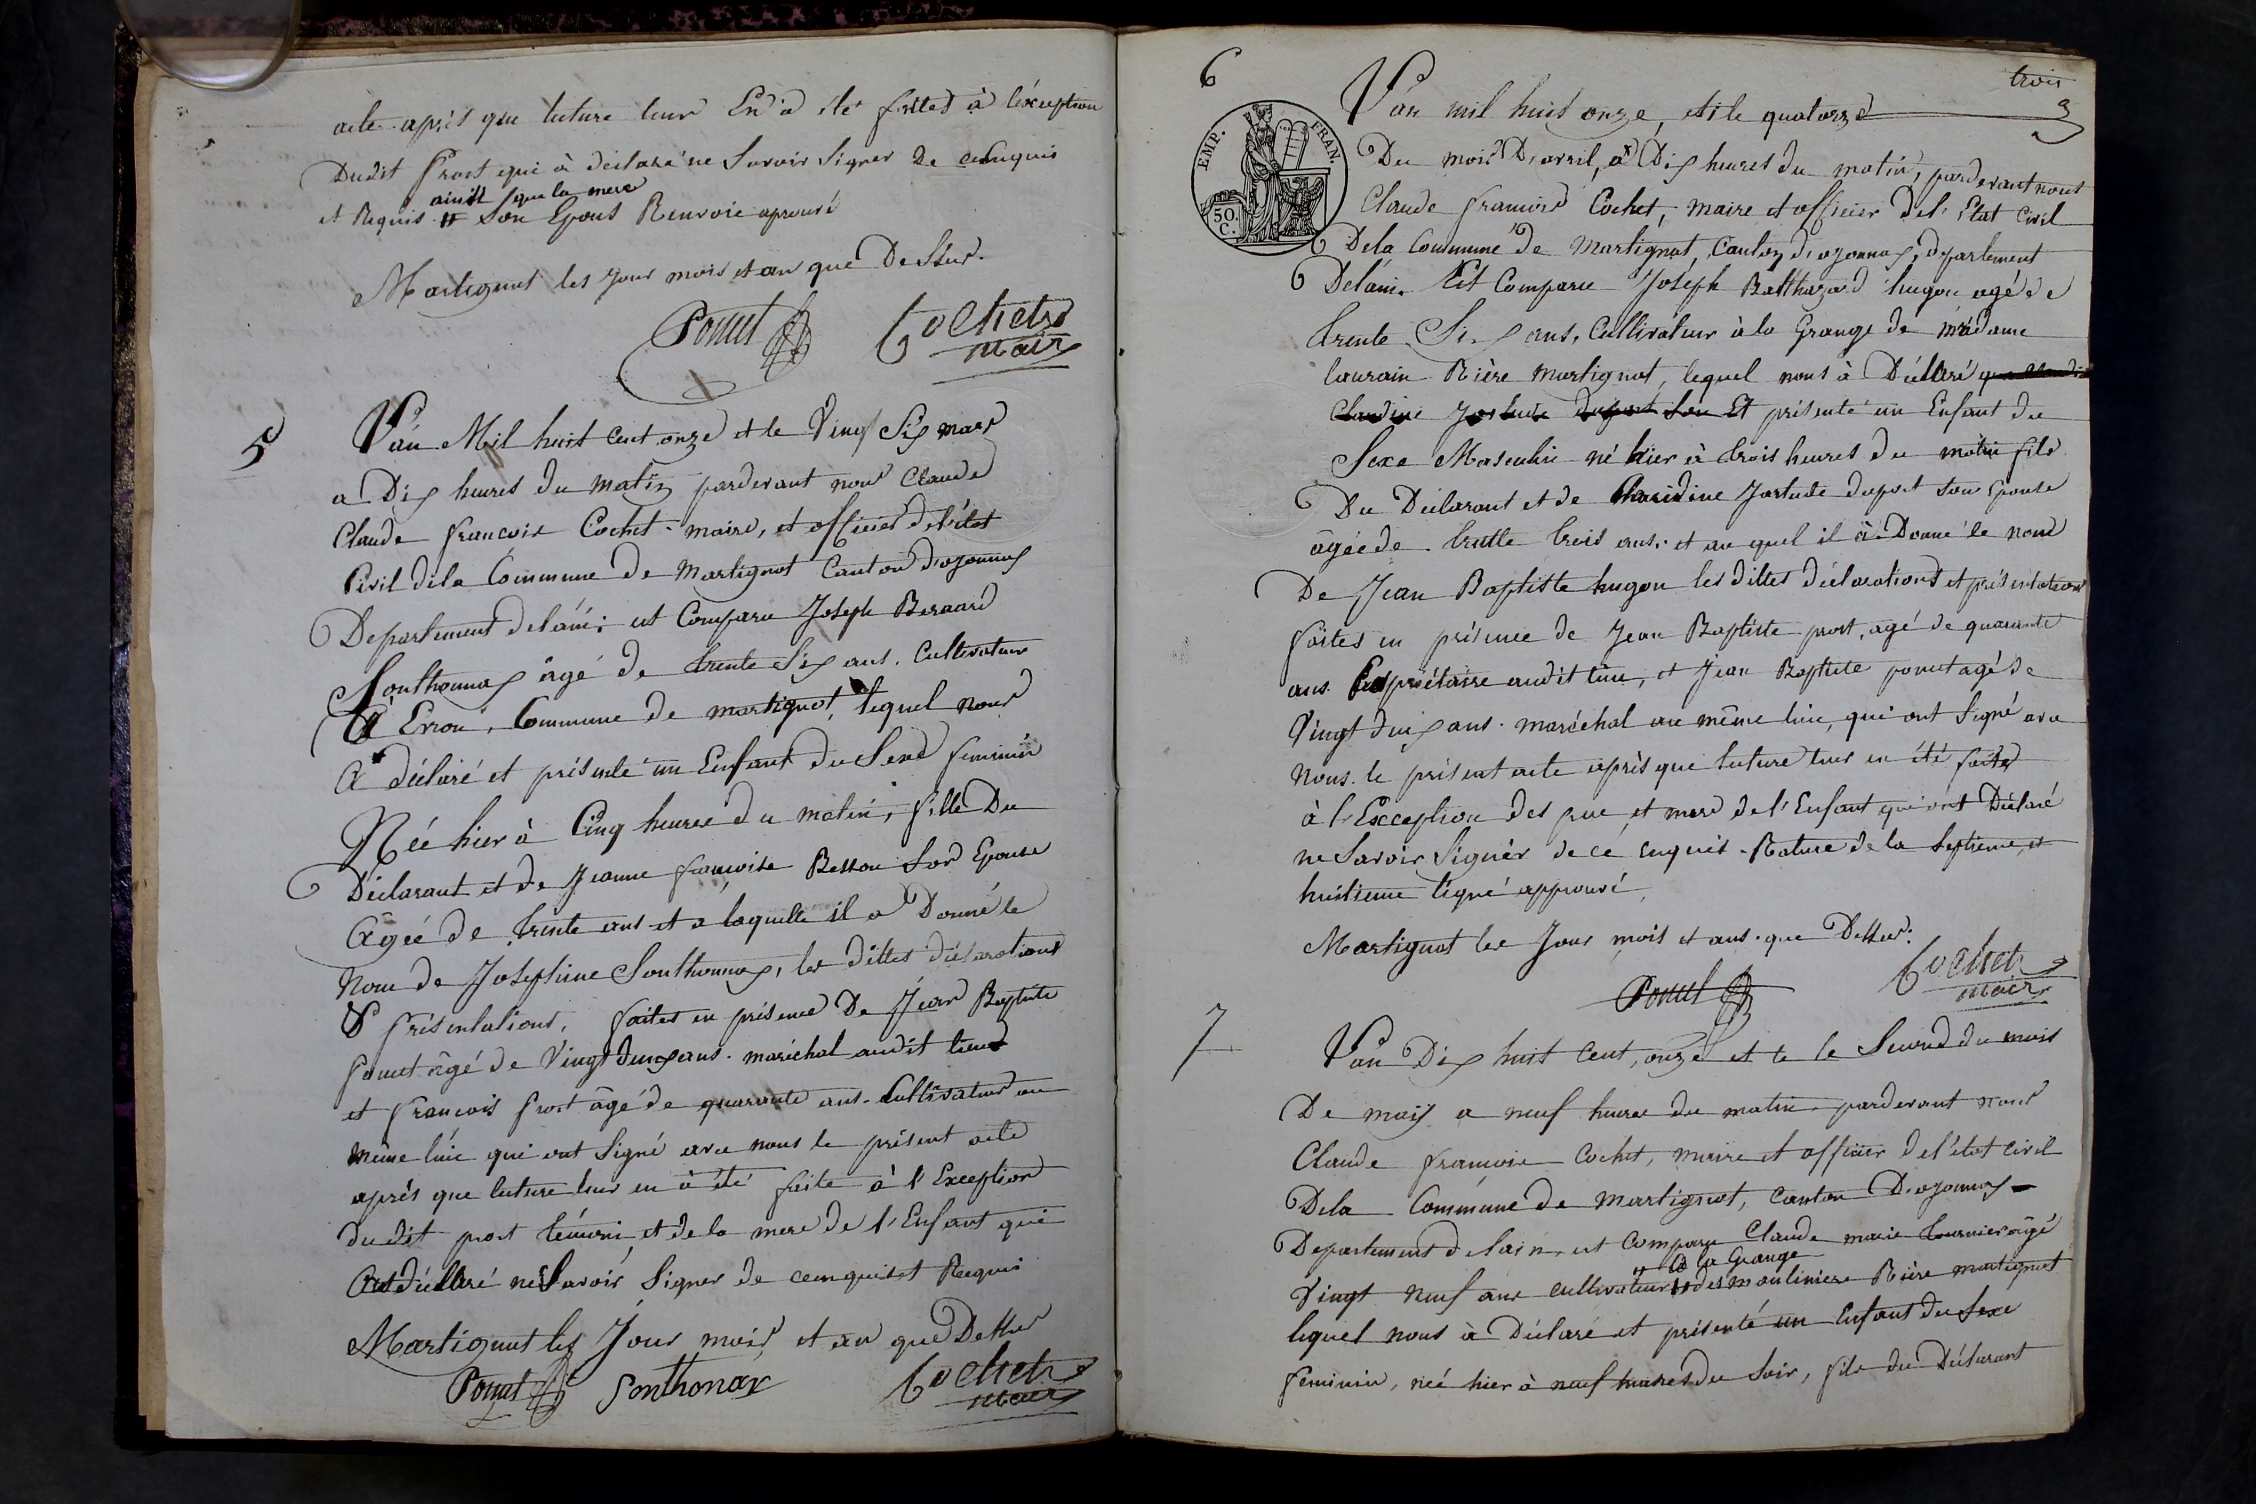 acte après que lecture leur En a été faites à l'éxception
Dudit Prost qui à déclaré ne Savoir Signer De ce enquis
ainsi que la mere
et Requis # Son Epous Renvoie aprouvé
Martignat les jour mois et an que Dessus.
Ponut Cochet
maire
5
L'an Mil huit cent onze et le Vingt Six mars
a Dix heures du matin pardevant nous Claude
Claude francois Cochet maire, et officier de l'état
Civil dela Commune de Martignat Canton d'oyonnax
Departement delain; est Comparu Joseph Bernard
Sonthonnax âgé de trente Six ans. Cultivateur
A Evron, Commune de martignat, lequel nous
A déclaré et présenté un Enfant du Sexe feminin
Née hier à Cinq heures du matin, fille Du
Déclarant et de Jeanne francoise Besson Son Epouse
Âgée de trente ans et a laquelle il a Donné le
Nom de Josephine Sonthonnax, les dittes déclarations
& présentations, faites en présence De Jean Baptiste
ponut âgé de Vingt deux ans. maréchal audit lieu
et francois prost âgé de quarante ans. Cultivateur au
même lieu qui ont Signé avec nous le présent acte
après que lecture leur en à été faite à l'Exception
du dit prost témoin et de la mere de l'Enfant qui
Ont déclaré ne Savoir Signer de ce enquis et Requis
Martignat les Jour mois et an que Dessus
Ponut Sonthonax Cochet
maire
6
trois
3
EMP. FRAN.
50. C.
L'an mil huit onze, et le quatorze
Du mois D'avril, a Dix heures du matin, pardevant nous
Claude francois Cochet, maire et officier del'Etat civil
Dela Commune De Martignat, Canton d'oyonnax, département
Delain. Est Comparu Joseph Balthazard hugon agé de
trente Six ans, Cultivateur à la Grange de madame
laurain Rière Martignat, lequel nous à Déclaré
Et présenté un Enfant du
Sexe Masculin né hier à trois heures du matin fils
Du Déclarant et de Claudine Jostude duport Son Epouse
âgée de trentte trois ans. et au quel il à Donné le nom
De Jean Baptiste hugon les dittes déclarations et présentations
faites en présence de Jean Baptiste prost, agé de quarante
ans Propriétaire audit lieu, et Jean Baptiste ponut agé de
Vingt deux ans. maréchal au même lieu, qui ont Signé avec
Nous. le présent acte après que lecture leur en été faite
à l'Exception des pere et mere de l'Enfant qui ont Déclaré
ne Savoir Signér de ce enquis. Rature de la Septieme, et
huitieme ligne approuvé,
Martignat les Jour, mois et ans. que Dessus:
Ponut Cochet
maire
7
L'an Dix huit Cent, onze et le le Second du mois
De may a neuf heures du matin. pardevant nous
Claude francois Cochet, maire et officier del'état civil
Dela Commune de Martignat, Canton D'oyonnax
Departement delain, est Comparu Claude marie tournier âgé
# a la Grange
Vingt neuf ans cultivateur # des moulinière Rière martignat
lequel nous à Déclaré et présenté un Enfant du Sexe
feminin, née hier à neuf heures du Soir, fils du Déclarant